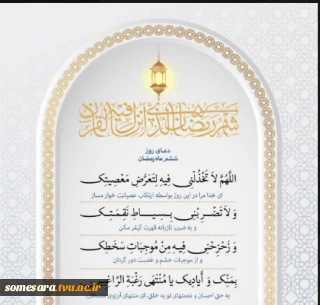 شهر رمضان الذي انزل فيه القرآن
دعای روز
ششم ماه رمضان
اللَّهُمَّ لاَ تَخْذُلْنِی فِیهِ لِتَعَرُّضِ مَعْصِیَتِکَ
ای خدا مرا در این روز بواسطه ارتکاب عصیانت خوار مساز
وَ لاَ تَضْرِبْنِی بِسِیَاطِ نَقِمَتِکَ
و به ضرب تازیانه قهرت کیفر مکن
وَ زَحْزِحْنِی فِیهِ مِنْ مُوجِبَاتِ سَخَطِکَ
و از موجبات خشم و غضبت دور گردان
بِمَنِّکَ وَ أَیَادِیکَ یَا مُنْتَهَی رَغْبَةِ
به حق احسان و نعمتهای تو به خلق، ای منتهای آرزوی
somesara.tvu.ac.ir